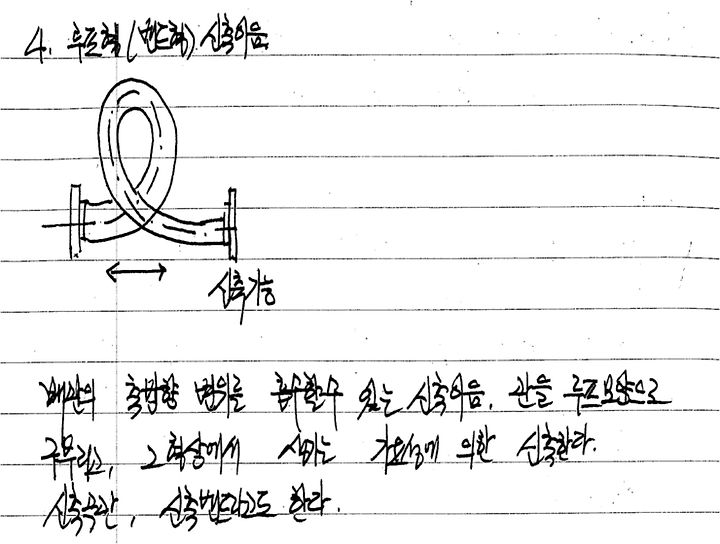 4. 루프형 (벤드형) 신축이음
신축가능
배관의 축방향 변위를 흡수할수 있는 신축이음. 관을 루프모양으로
구부리고, 그 형상에서 생기는 가요성에 의한 신축한다.
신축곡관, 신축벤드라고도 한다.